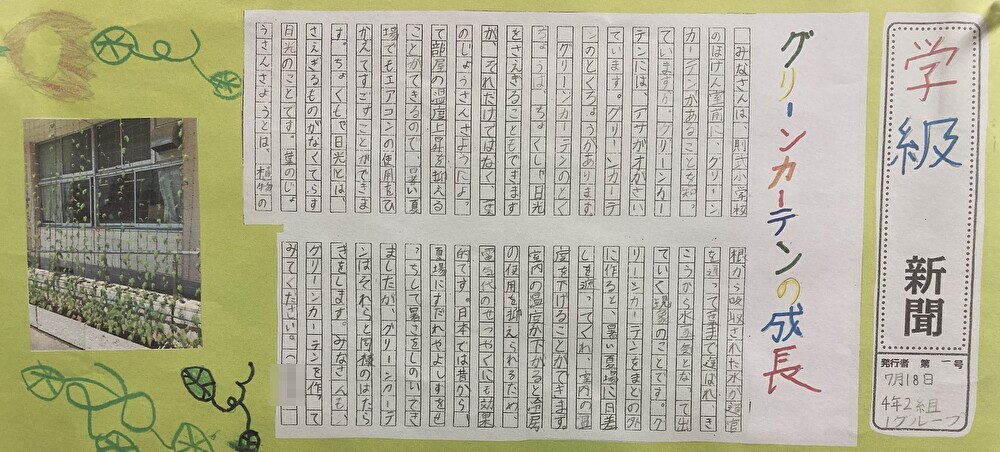 学級
新聞
発行者 第一号
7月18日
4年2組
1グループ
グリーンカーテンの成長
みなさんは、則武小学校
のほけん室前に、グリーン
カーテンがあることを知っ
ていますか。グリーンカー
テンには、アサガオがさい
ています。グリーンカーテ
ンのとくちょうがあります。
グリーンカーテンのとく
ちょうは、ちょくしゃ日光
をさえぎることもできます
が、それだけではなく、葉
のじょうさんさようによっ
て部屋の温度上昇を抑える
ことができるので、暑い夏
場でもエアコンの使用をひ
かえてすごすことができま
す。ちょくしゃ日光とは、
さえぎるものがなくてらす
日光のことです。葉のじょ
うさんさようとは、植物の
根から吸収された水が道管
を通って葉まで運ばれ、き
こうから水蒸気となって出
ていく現象のことです。グ
リーンカーテンをまどの外
に作ると、暑い夏場に日差
しを遮ってくれ、室内の温
度を下げることができます。
室内の温度が下がると冷房
の使用を抑えられるため、
電気代のせつやくにも効果
的です。日本では昔から、
夏場にすだれやよしずをせ
っちして暑さをしのいでき
ましたが、グリーンカーテ
ンはそれらと同様のはたら
きをします。みなさんも、
グリーンカーテンを作って
みてください。(